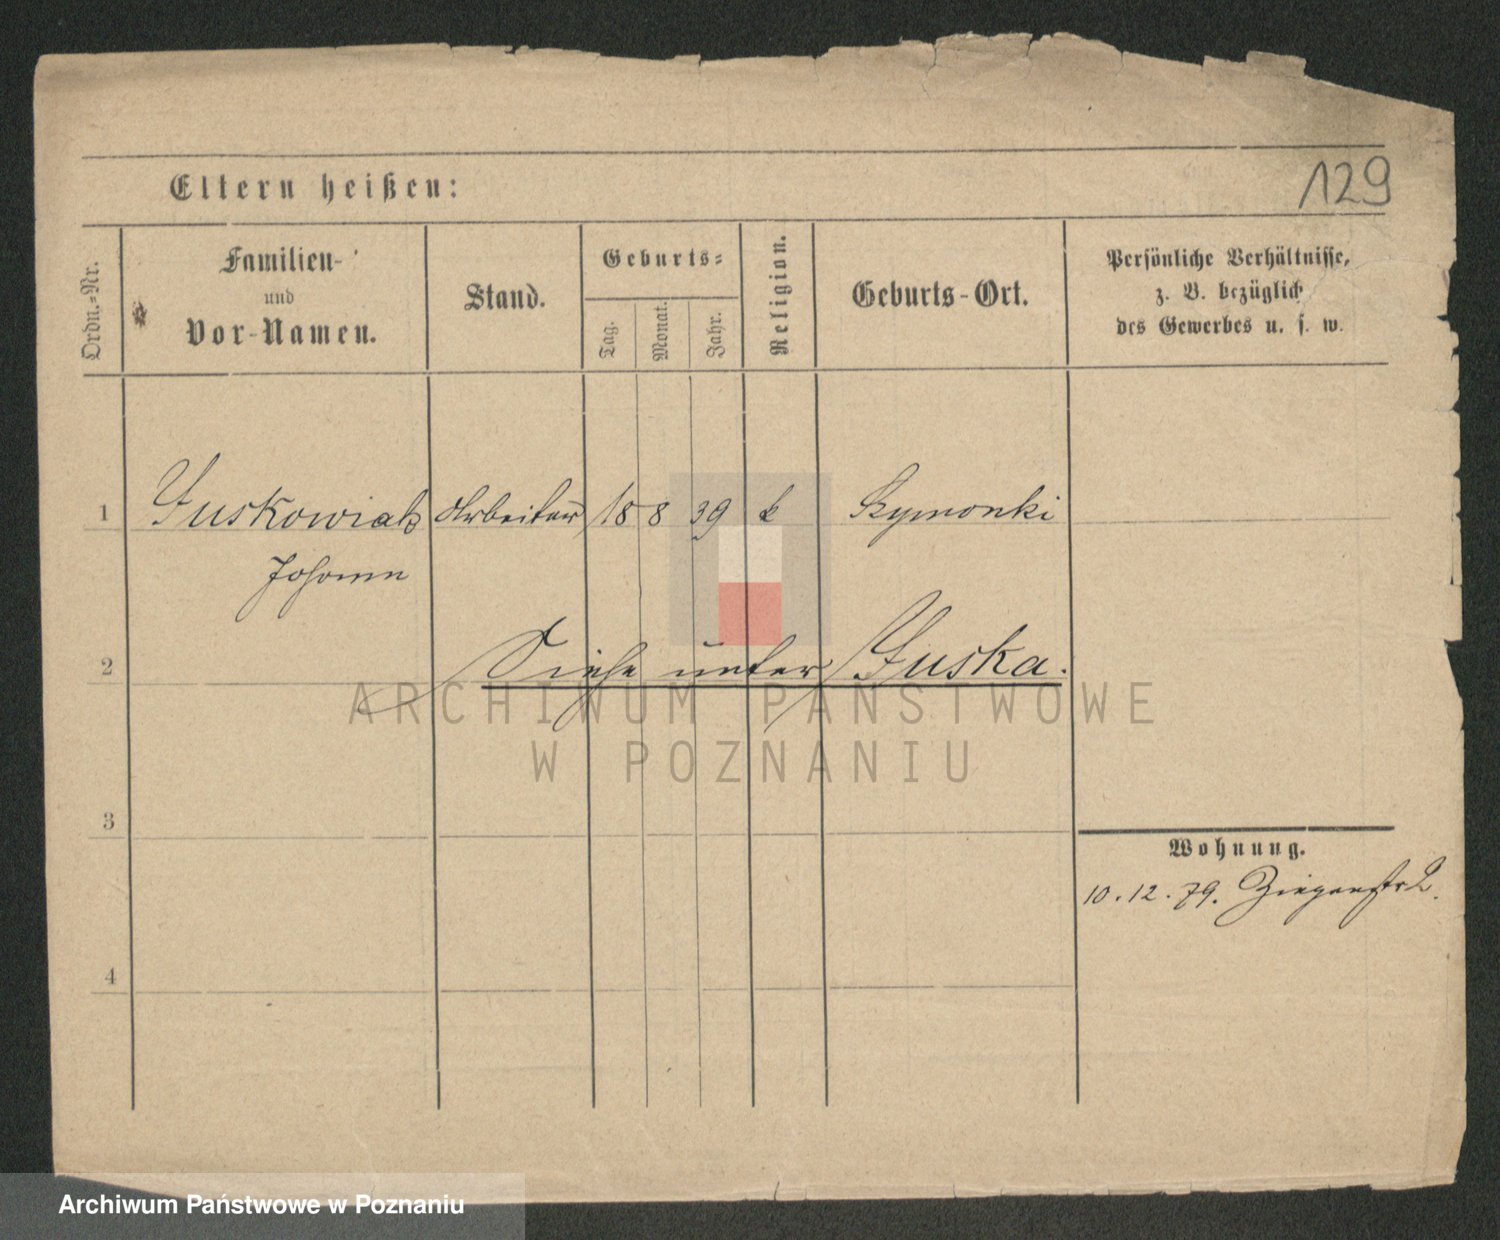 129
Eltern heißen:
Ordn.-Nr.
Familien-
und
Vor-Namen.
Stand.
Geburts-
Tag.
Monat.
Jahr.
Religion.
Geburts-Ort.
Persönliche Verhältnisse,
z. B. bezüglich
des Gewerbes u. s. w.
1 Juskowiak Arbeiter 18 8 39 k
Johann
2 Siehe unter Juska.
ARCHIWUM PAŃSTWOWE
W POZNANIU
3
Wohnung.
10.12.79. Ziegenstr 2.
4
Archiwum Państwowe w Poznaniu